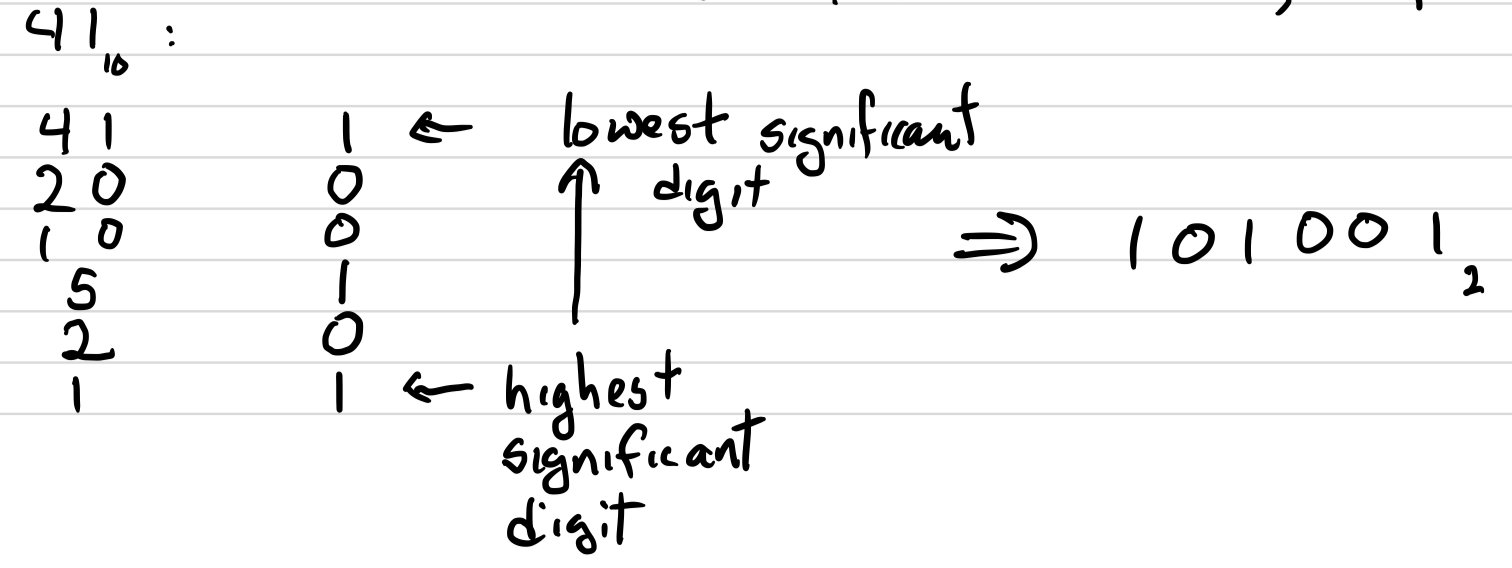 41₁₀ :
41 1 ← lowest significant
20 0 digit
10 0
5 1
2 0
1 1 ← highest
significant
digit
⇒ 101001₂